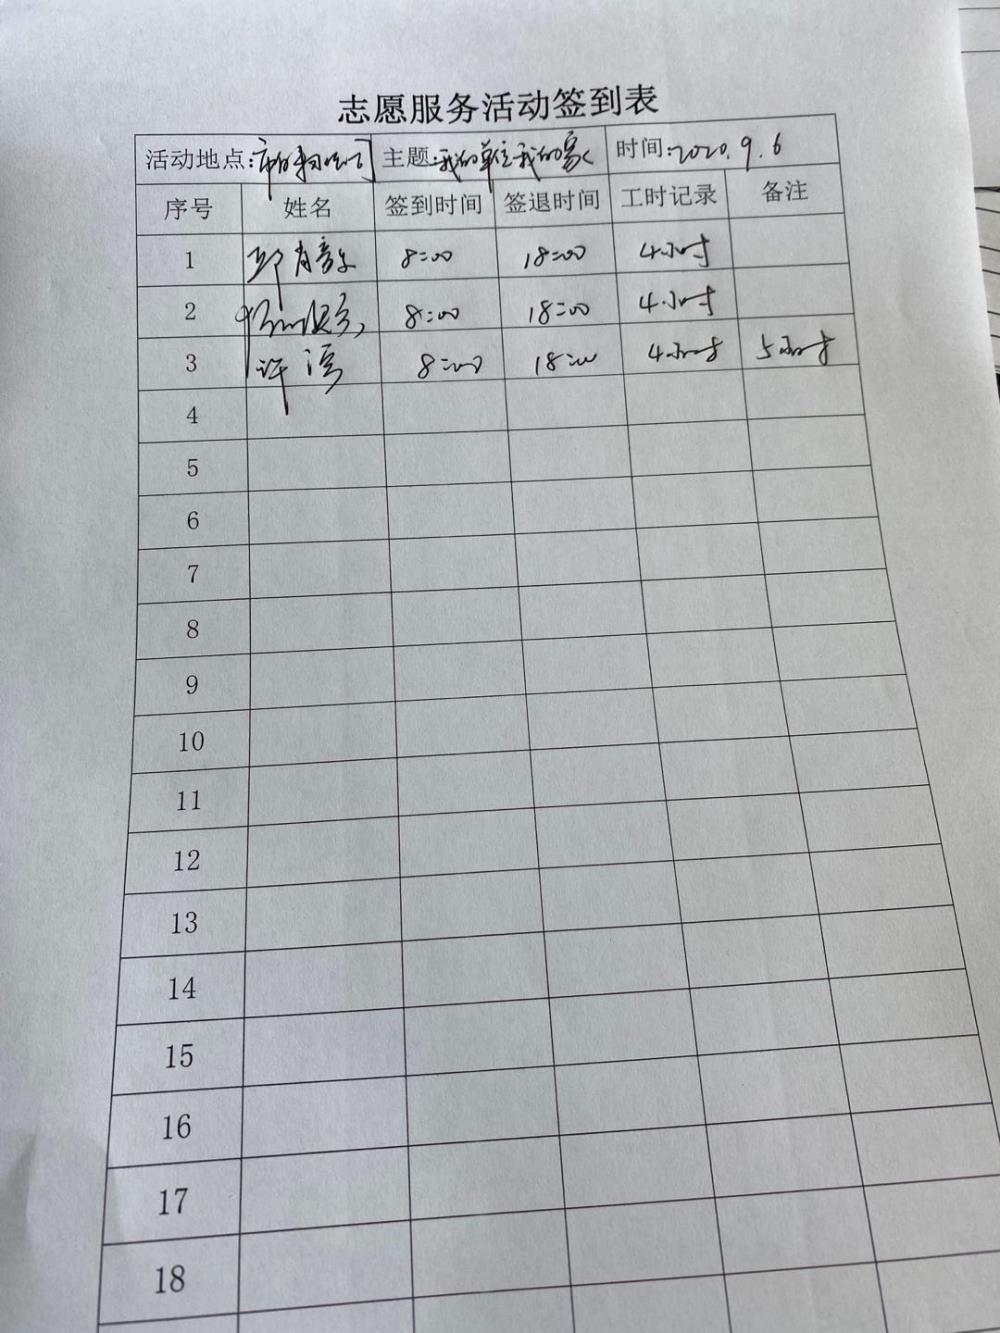 志愿服务活动签到表
活动地点: 主题:我的单位我的家 时间:2020.9.6
序号 姓名 签到时间 签退时间 工时记录 备注
1 8:00 18:00 4小时
2 8:00 18:00 4小时
3 许 8:00 18:00 4小时 5小时
4
5
6
7
8
9
10
11
12
13
14
15
16
17
18